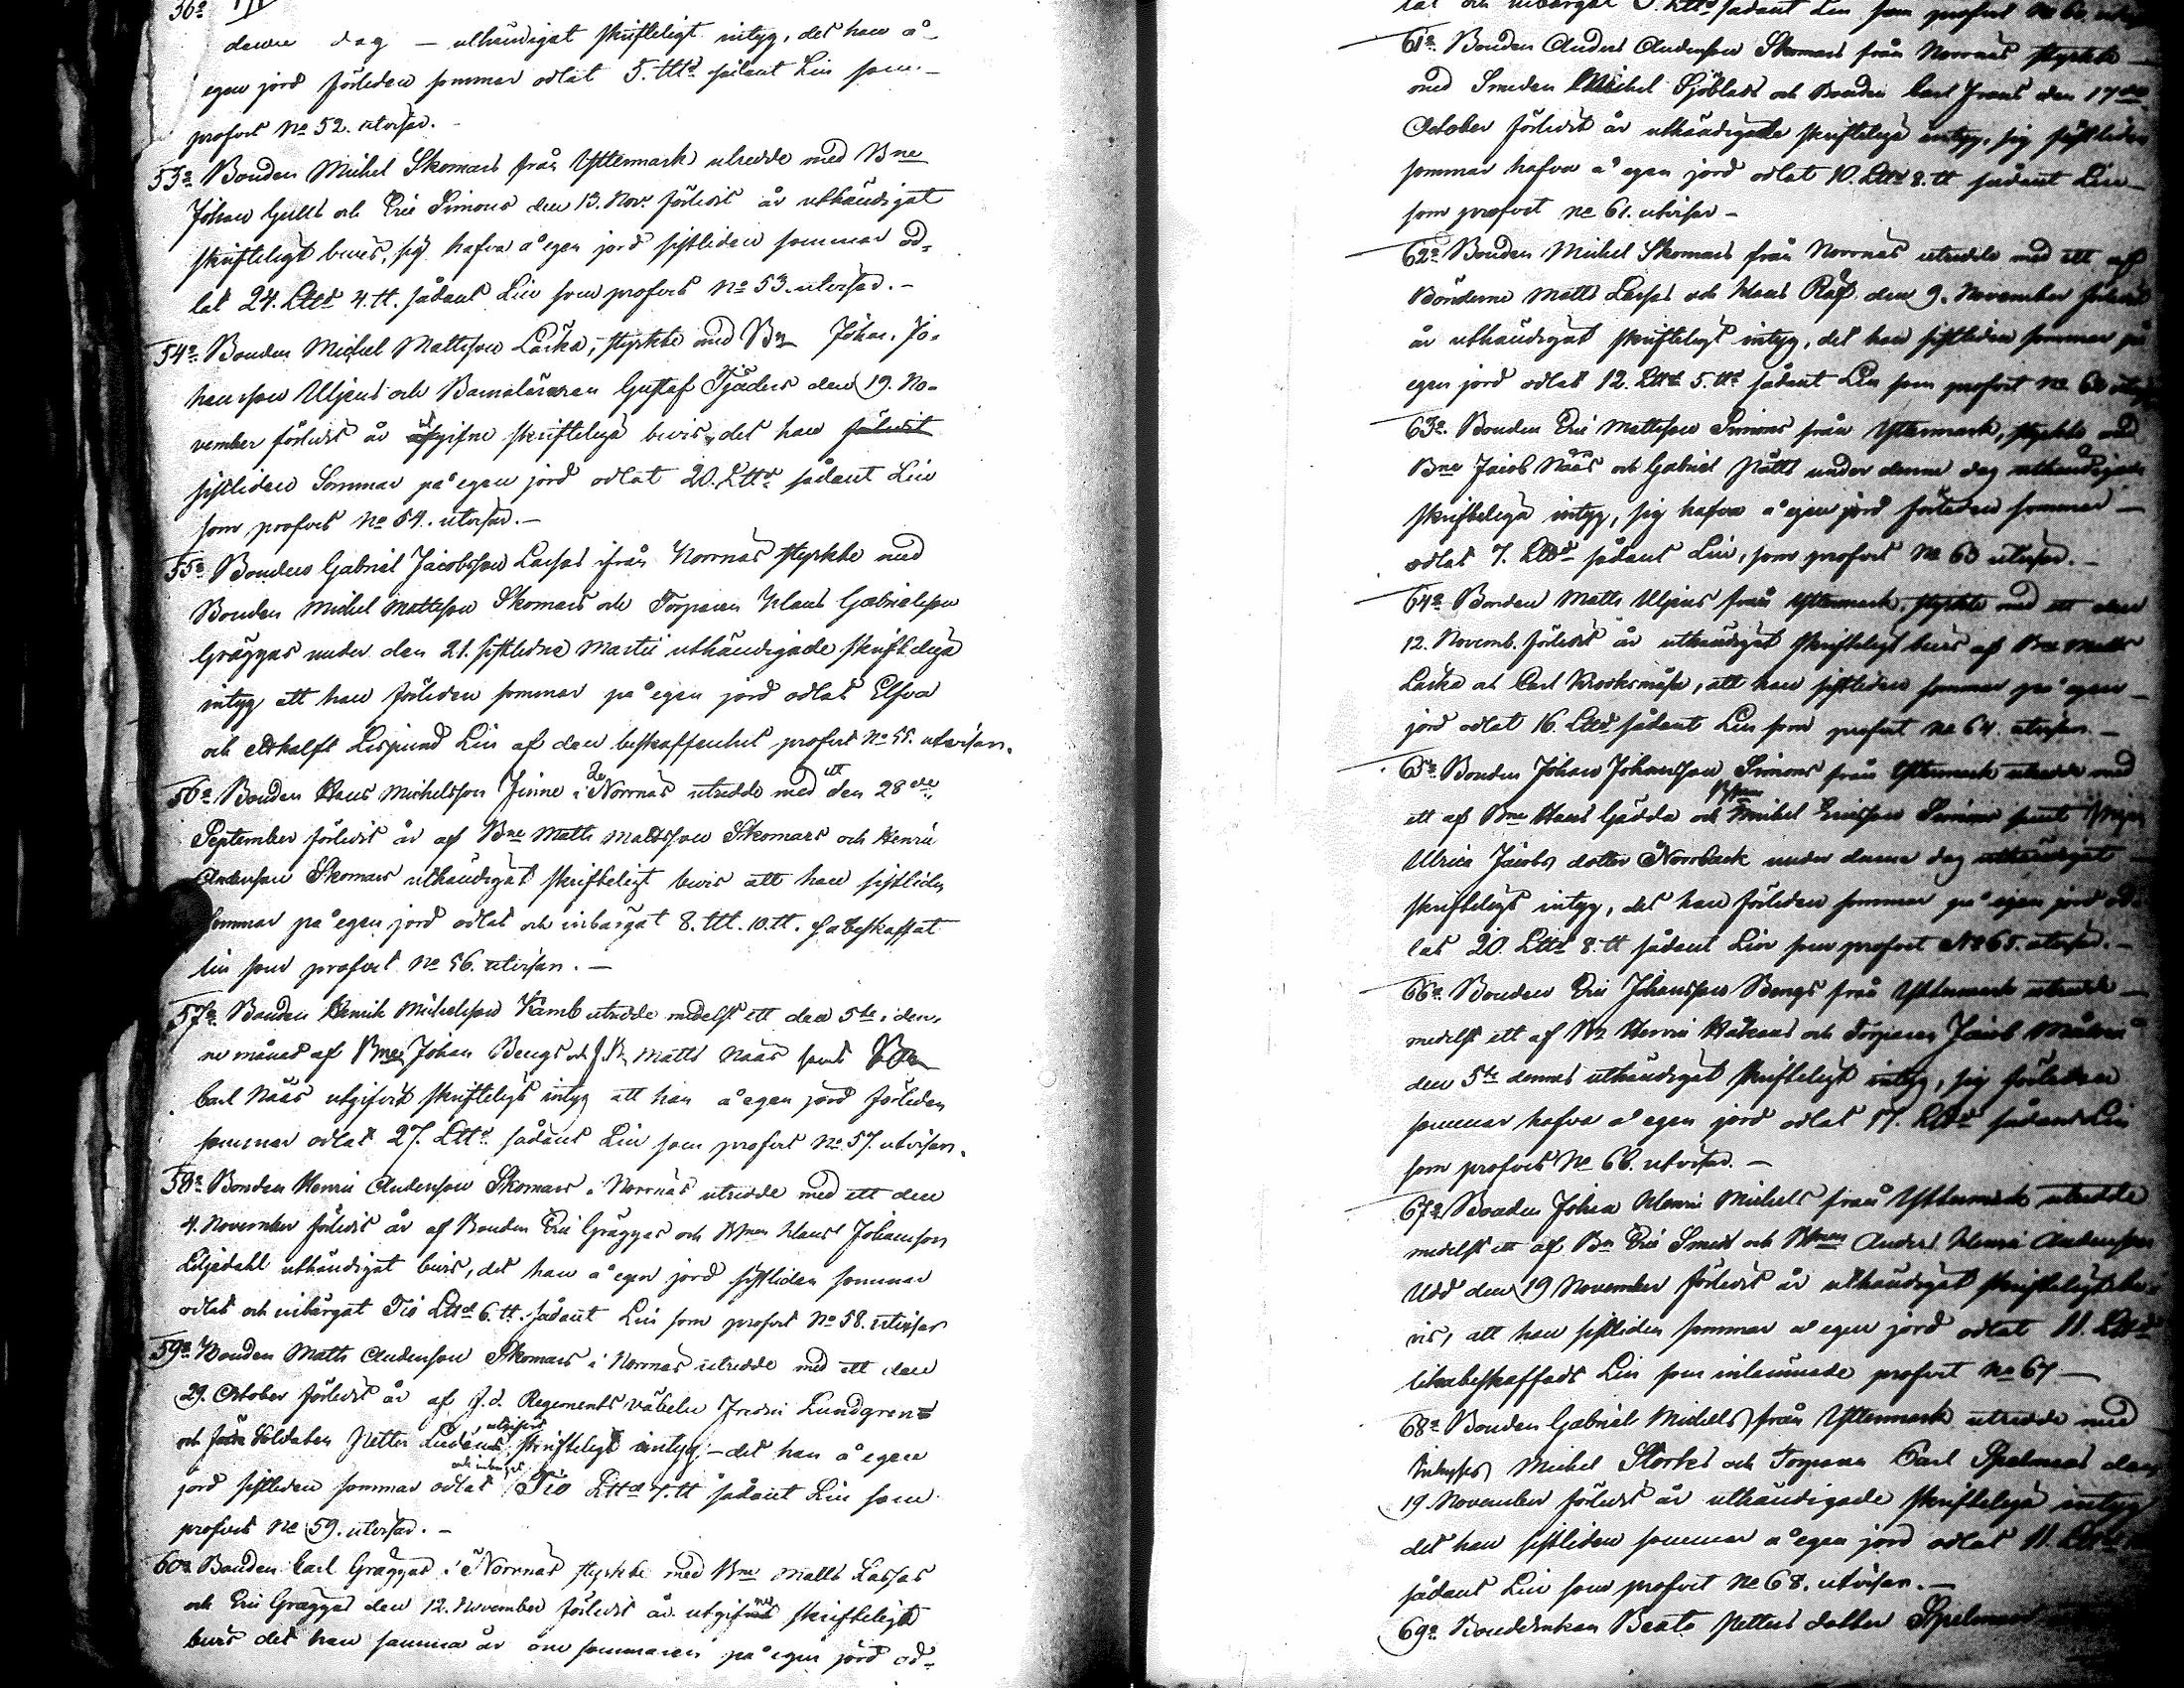 36a
denne dag — uthändigat skrifteligt intyg, det han å
egen jord förleden sommar odlat 5. Lttd sådant Lin som
profvet No 52. utvisar.
53a Bonden Michel Skomars från Yttermark utredde med Bne
Johan Gulls och Eric Simons den 13. Nov. förledit år uthändigat
skrifteligt bevis, sig hafva å egen jord sistliden sommar od-
lat 24. Lttd 4. tt. sådant Lin som profvet No 53. utvisar. —
54a Bonden Michel Mattsson Lacka, styrkte med Bn Johan Jo-
hansson Uljens och Barnaläraren Gustaf Tjäders den 19. No-
vember förledit år utgifne skrifteliga bevis, det han förledit
sistliden Sommar på egen jord odlat 20. Lttd sådant Lin
som profvet No 54. utvisar. —
55a Bonden Gabriel Jacobsson Lassas ifrån Norrnäs styrkte med
Bonden Michel Mattsson Skomars och Torparen Hans Gabrielsson
Gräggas under den 21. sistledne Martii uthändigade skrifteliga
intyg att han förleden sommar på egen jord odlat Elfva
och ett halft Lispund Lin af den beskaffenhet profvet No 55. utvisar.
56a Bonden Hans Michelsson Jinne i Norrnäs utredde med ett den 28de
September förledit år af Bne Matts Mattsson Skomars och Henric
Andersson Skomars uthändigat skrifteligt bevis att han sistliden
sommar på egen jord odlat och inbärgat 8. Ltt. 10. tt. så beskaffat
lin som profvet No 56. utvisar. —
57a Bonden Henrik Michelsson Kamb utredde medelst ett den 5te i den-
ne månad af Bne Johan Bengs och Matts Nääs samt
Carl Nääs utgifvit skrifteligt intyg att han å egen jord förleden
sommar odlat 27. Lttd sådant Lin som profvet No 57. utvisar.
58a Bonden Henric Andersson Skomars i Norrnäs utredde med ett den
4. November förledit år af Bonden Eric Gräggas och Hans Johansson
Liljedahl uthändigat bevis, det han å egen jord sistliden sommar
odlat och inbärgat Tio Lttd 6. tt. sådant Lin som profvet No 58. utvisar
59a Bonden Matts Andersson Skomars i Norrnäs utredde med ett den
29. October förledit år af f.d. Regements väbeln Fredric Lundgren
och Soldaten Petter utgifvet skrifteligt intyg, — det han å egen
jord sistliden sommar odlat och inbärgat Tio Lttd 7. tt sådant Lin som
profvet No 59. utvisar. —
60a Bonden Carl Gräggas i Norrnäs styrkte med Bne Matts Lassas
och Eric Gräggas den 12. November förledit år utgifne skrifteligt
bevis det han samma år om sommaren på egen jord od-
lat och inbärgat 5. Lttd sådant Lin som profvet No 60.
61a Bonden Anders Andersson Skomars från Norrnäs styrkte —
med Smeden Michel Sjöblads och Bonden Carl Frans den 17de
October förledit år uthändigade skrifteliga intyg, sig sistliden
sommar hafva å egen jord odlat 10. Lttd 8. tt sådant Lin
som profvet No 61. utvisar —
62a Bonden Michel Skomars från Norrnäs utredde med ett af
Bönderne Matts Lassas och Hans Räf den 9. November förledit
år uthändigat skrifteligt intyg, det han sistliden sommar på
egen jord odlat 12. Lttd 5. tt sådant Lin som profvet No
63a. Bonden Eric Mattsson Simons från Yttermark, styrkte med
Bne Jacob Näås och Gabriel Nätts under denne dag uthändigade
skrifteliga intyg, sig hafva å egen jord förleden sommar —
odlat 7. Lttd sådant Lin, som profvet No 63 utvisar. —
64a Bonden Matts Uljens från Yttermark, styrkte med ett den
12. Novemb. förledit år uthändigat skrifteligt bevis af Bne Matts
Lacka och Carl Krooksnäsa, att han sistliden sommar på egen
jord odlat 16. Lttd sådant Lin som profvet No 64. utvisar. —
65a Bonden Johan Johansson Simons från Yttermark utredde med
ett af Bne Hans Gädda och Michel Ericsson Simons samt
Ulrica Jacobs dotter Norrback under denne dag uthändigat
skrifteligt intyg, det han förleden sommar på egen jord od-
lat 20. Lttd 8. tt sådant Lin som profvet No 65. utvisar. —
66a Bonden Eric Johansson Bengs från Yttermark utredde —
medelst ett af Bn Henric Håkans och Torparen Jacob
den 5te dennes uthändigat skrifteligt intyg, sig förleden
sommar hafva å egen jord odlat 17. Lttd sådant Lin
som profvet No 66. utvisar. —
67a Bonden Johan Henric Michels från Yttermark utredde
medelst ett af Bn Eric Smeds och Anders Henric Andersson
Udd den 19 November förledit år uthändigat skrifteligt be-
vis, att han sistliden sommar å egen jord odlat 11. Lttd
lika beskaffads Lin som inlemnade profvet No 67 —
68a Bonden Gabriel Michels från Yttermark utredde med
Inhyses Michel Storkes och Torparen Carl Spelmans den
19. November förledit år uthändigade skrifteliga intyg
det han sistliden sommar å egen jord odlat 11. Lttd
sådant Lin som profvet No 68. utvisar. —
69a Bondeenkan Beata Petters dotter Spelmans